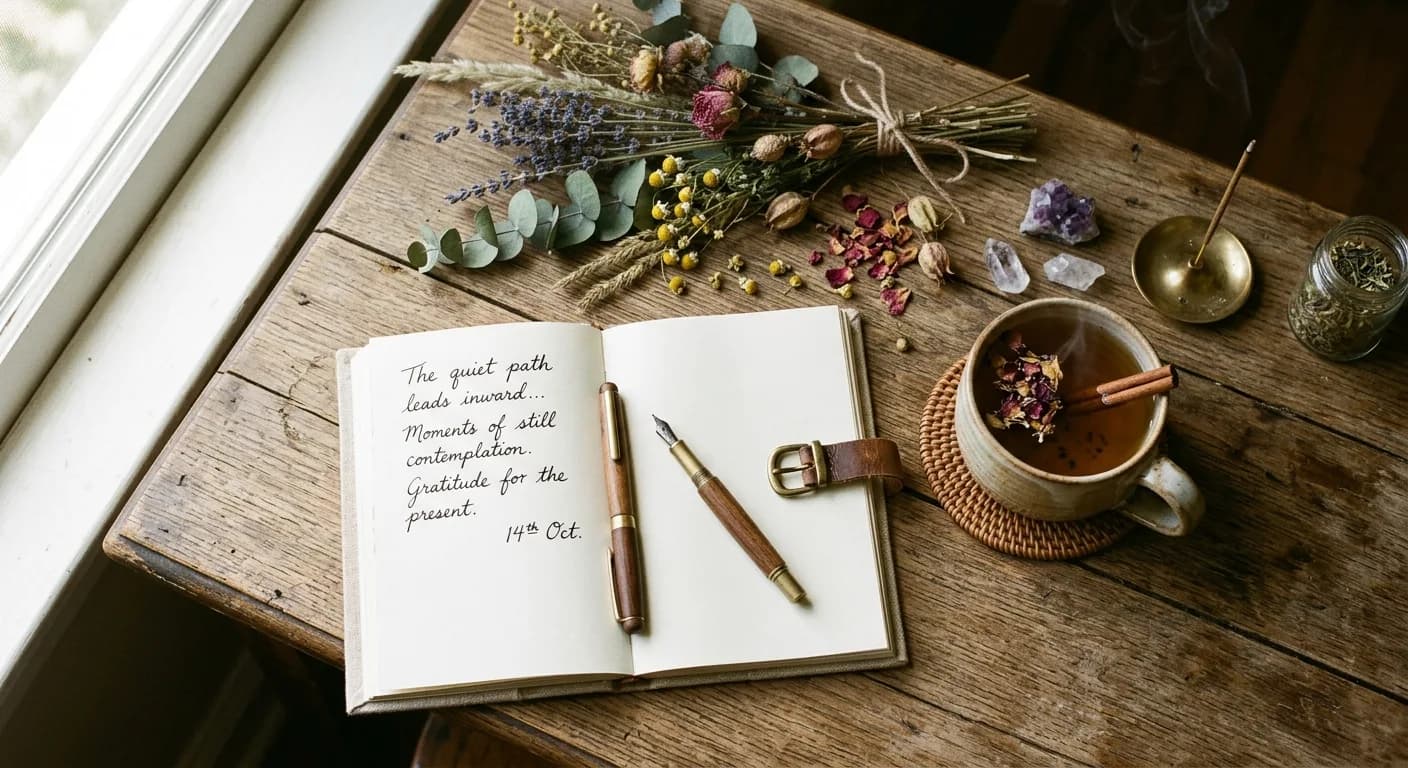 The quiet path
leads inward...
Moments of still
contemplation.
Gratitude for the
present.
14th Oct.